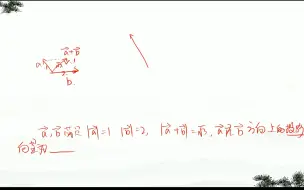 a⃗+b⃗
a
b
a⃗,b⃗满足 |a⃗|=1 |b⃗|=2, |a⃗+b⃗|=√3, a⃗在b⃗方向上的投影
向量为____